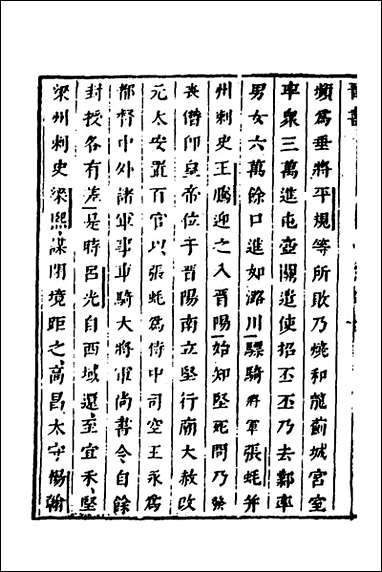 頻爲垂將平規等所敗乃燒和龍薊城宮室
率衆三萬進屯壺關遣使招丕丕乃去鄴率
男女六萬餘口進如潞川驃騎將軍張蚝并
州刺史王騰迎之入晋陽始知堅死問乃發
喪僭卽皇帝位于晋陽南立堅行廟大赦改
元太安置百官以張蚝爲侍中司空王永爲
都督中外諸軍事車騎大將軍尚書令自餘
封授各有差是時呂光自西域還至宜禾堅
梁州刺史梁熙謀閉境距之高昌太守楊翰